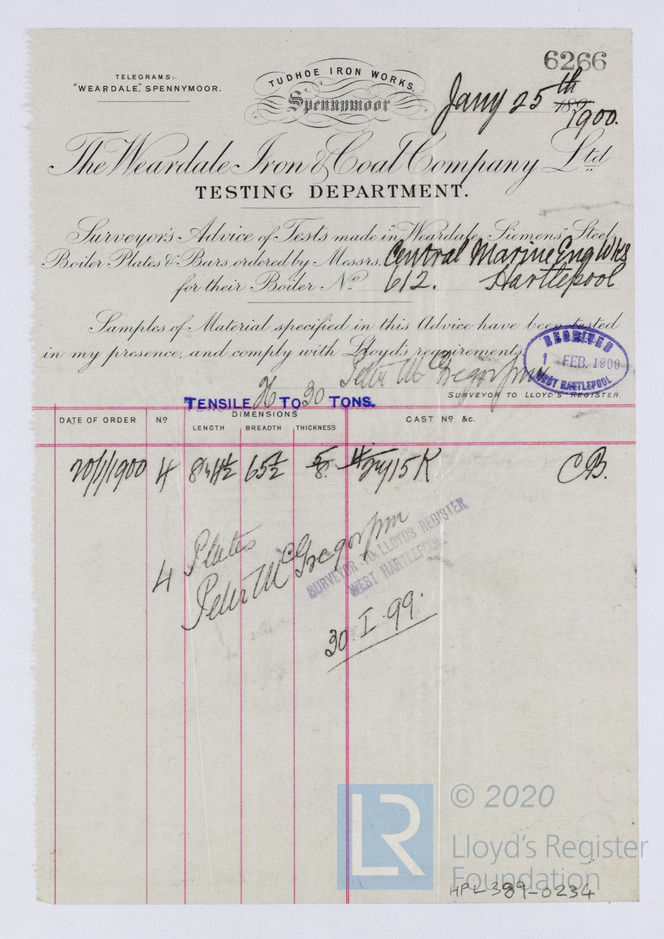 6266
TELEGRAMS:-
"WEARDALE," SPENNYMOOR.
TUDHOE IRON WORKS,
Spennymoor
Jany 25th
1900.
The Weardale Iron & Coal Company Ltd
TESTING DEPARTMENT.
Surveyor's Advice of Tests made in "Weardale Siemens" Steel
Boiler Plates & Bars ordered by Messrs. Central Marine Eng Wks
for their Boiler No. 612. Hartlepool
Samples of Material specified in this Advice have been tested
in my presence, and comply with Lloyd's requirements.
RECEIVED
1 FEB. 1900
WEST HARTLEPOOL
Peter McGregor
SURVEYOR TO LLOYD'S REGISTER.
TENSILE 26 TO 30 TONS.
DATE OF ORDER No DIMENSIONS CAST No &c.
LENGTH BREADTH THICKNESS
20/1/1900 4 65½ 5/8 15K CB.
4 Plates
Peter McGregor
SURVEYOR TO LLOYDS REGISTER
WEST HARTLEPOOL.
30.I.99.
LR
© 2020
Lloyd's Register
Foundation
HPL-389-0234